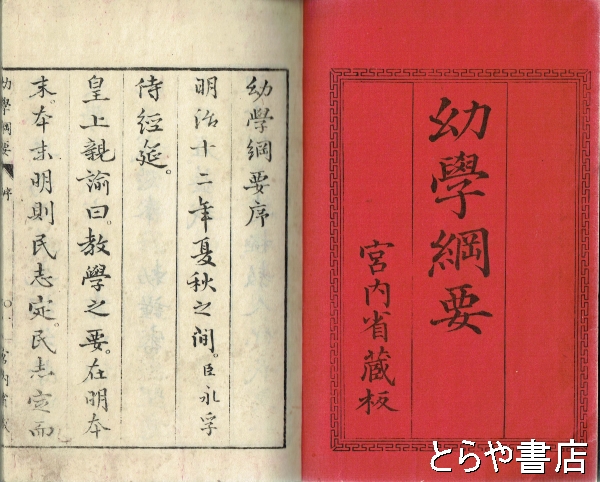 幼學綱要
宮内省蔵板
幼學綱要序
明治十二年夏秋之間。臣永孚
侍經筵。
皇上親諭曰。教學之要。在明本
末。本末明則民志定。民志定而
幼學綱要
序
宮内省蔵
とらや書店